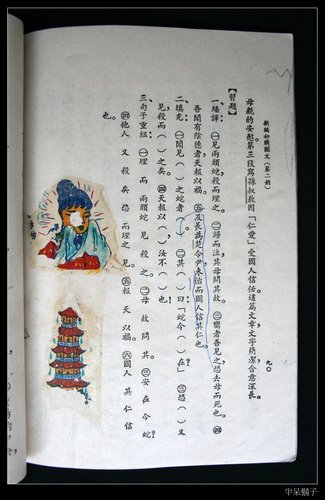 新編初職國文（第二册）
九〇
母親的安慰。第三段寫孫叔敖因「仁愛」受國人信任。這篇文章文字簡潔含意深長。
【習題】
一、繙譯：㈠見兩頭蛇殺而埋之。㈡歸而泣其母問其故。㈢嚮者吾見之恐去母而死也。㈣
吾聞有陰德者天報以福。㈤及長為楚令尹未治而國人信其仁也。
二、填充：㈠聞見（　）之蛇者。㈡其（　）曰：「蛇今（　）在？」㈢恐（　）又
見殺而（　）之矣。㈣天報以（　）汝不（　）也！
三、句子重組：㈠埋 而 兩頭蛇 見 殺 之。㈡母 故 問 其。㈢安 在 今 蛇？
㈣他人 又 殺 矣 恐 而埋之 見。㈤報 天 以 福。㈥國人 其 仁 信
也。